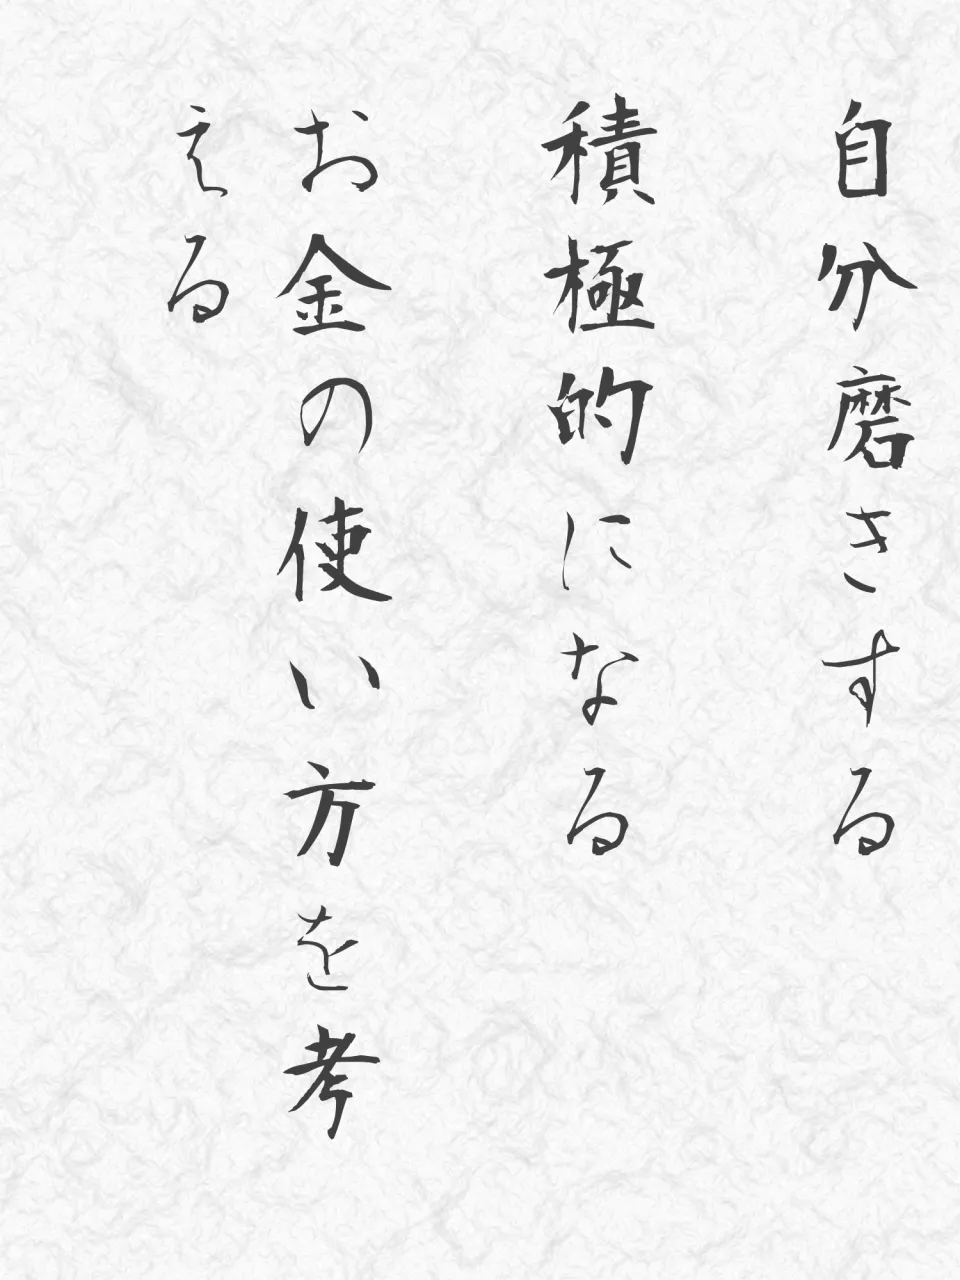 自分磨きする
積極的になる
お金の使い方を考
える